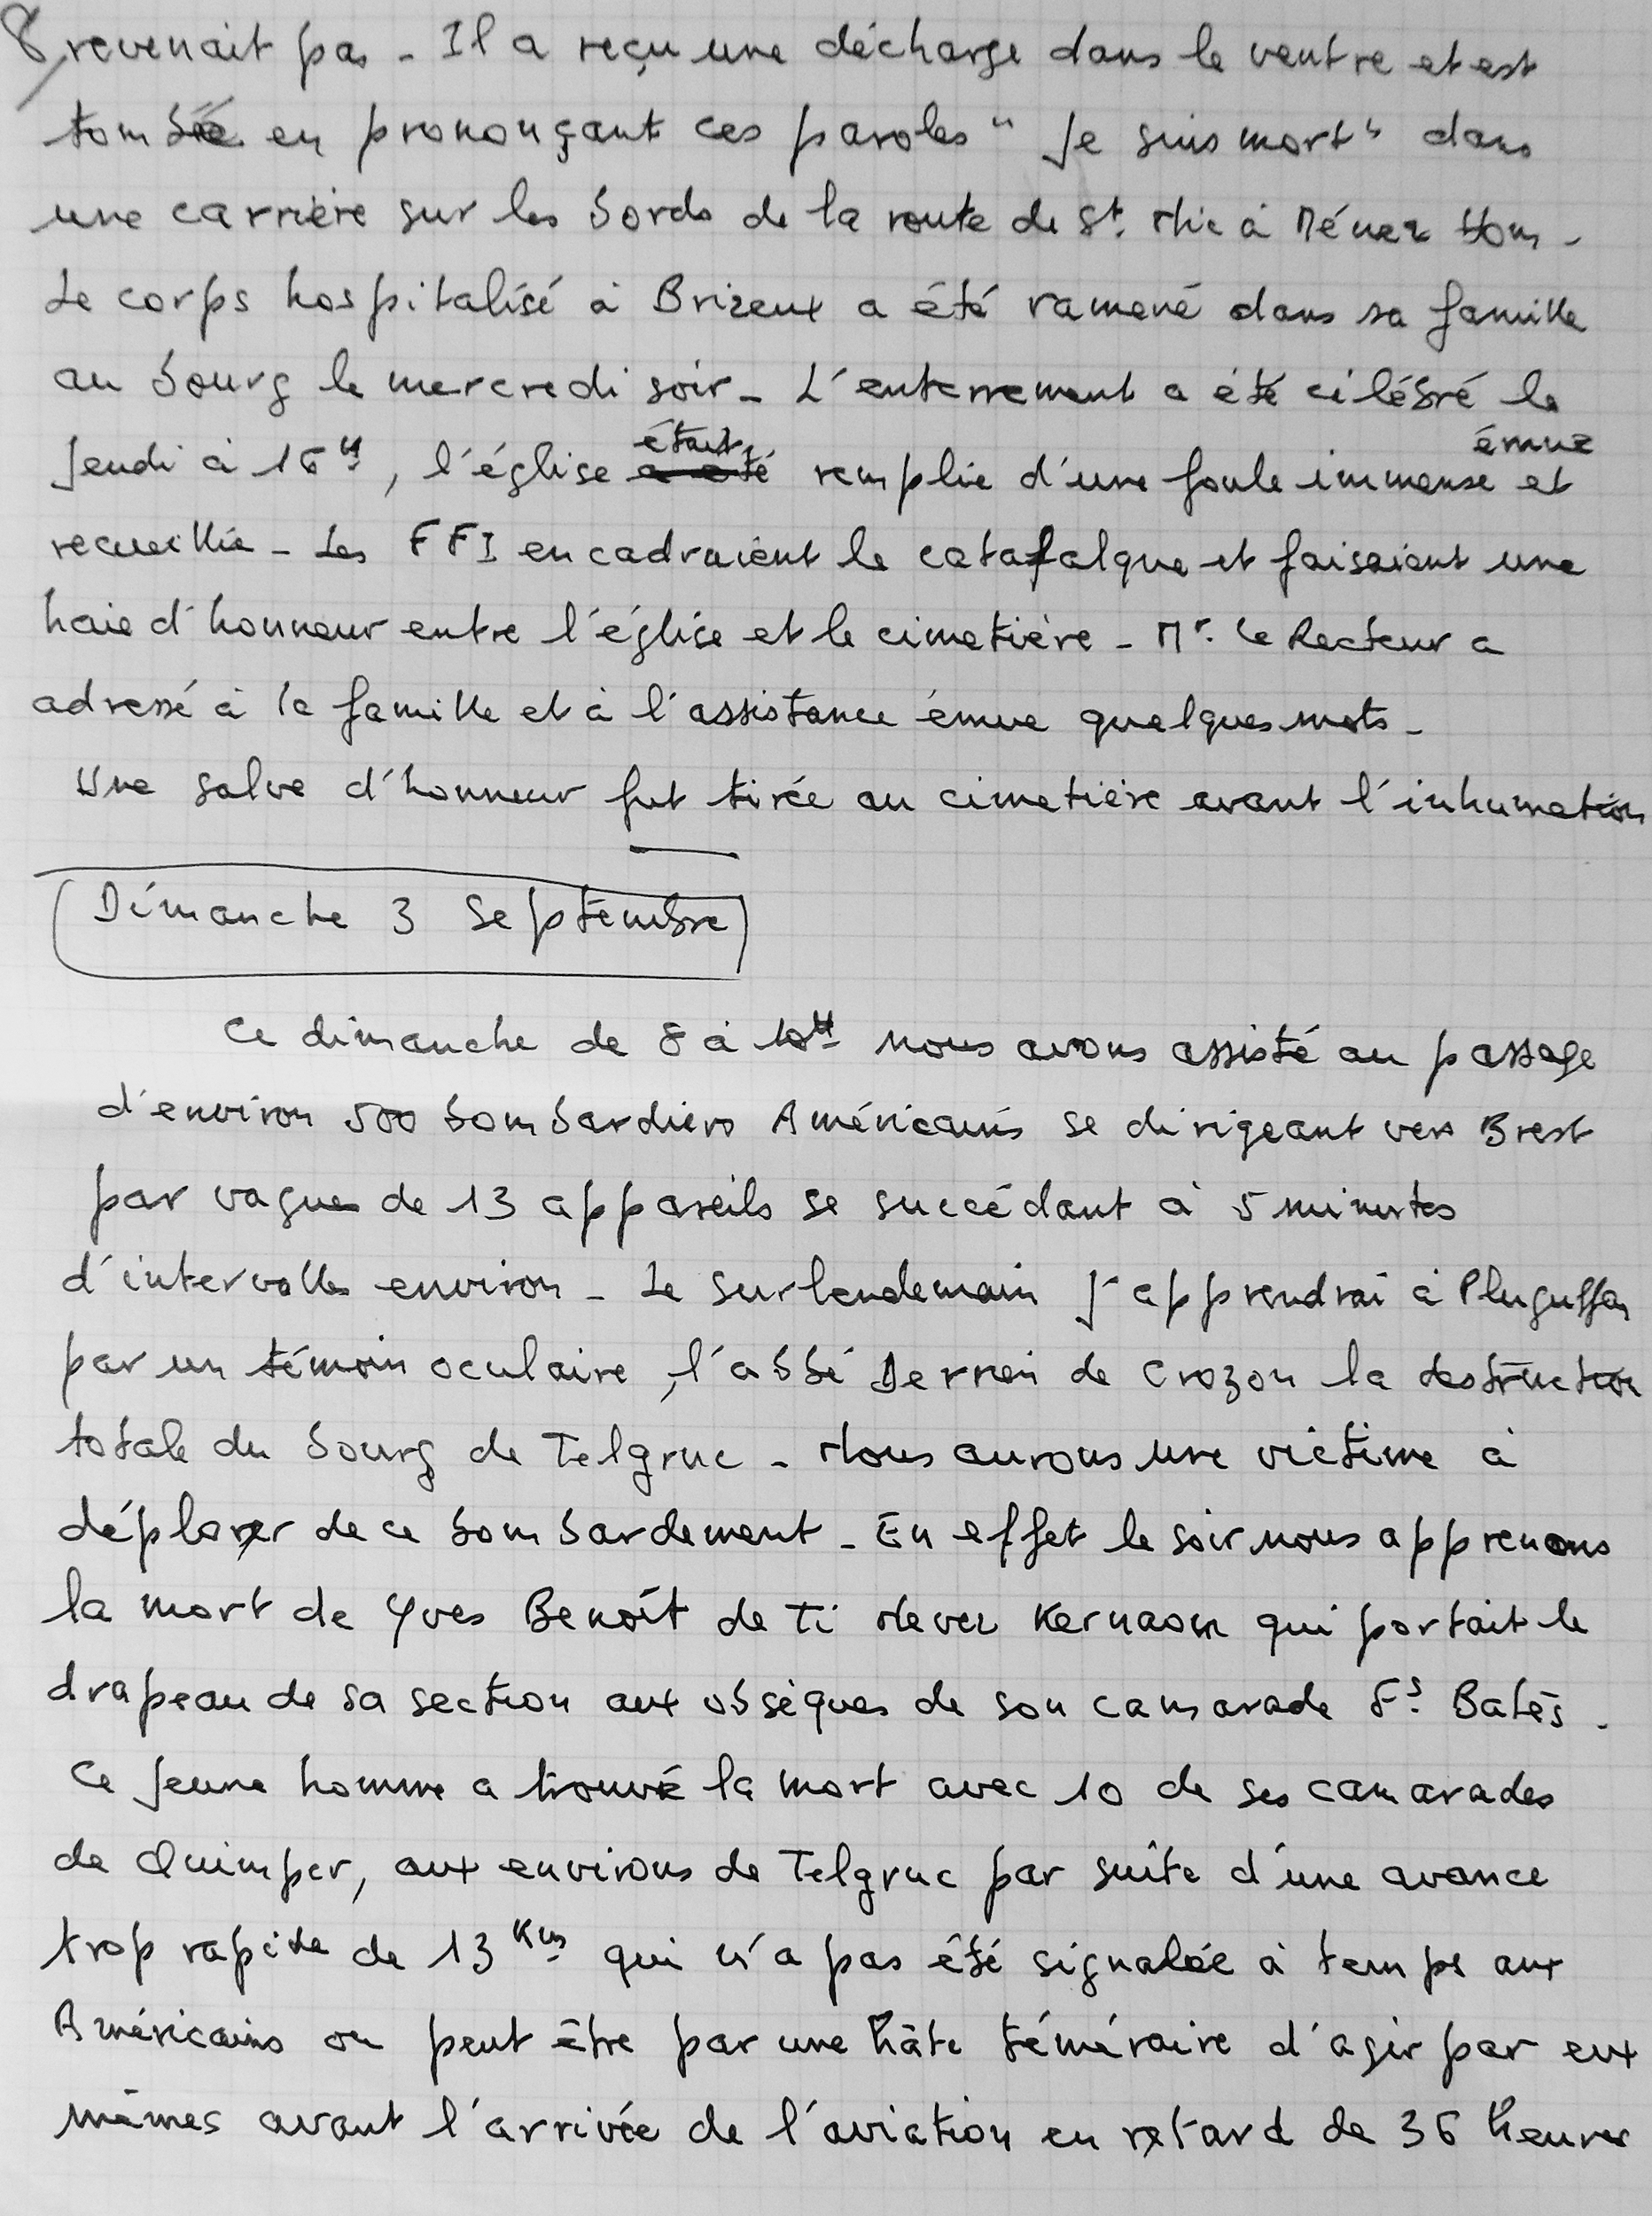 8 revenait pas - Il a reçu une décharge dans le ventre et est
tombé en prononçant ces paroles " Je suis mort " dans
une carrière sur les bords de la route de St. Nic à Ménez Hom -
Le corps hospitalisé à Brizeux a été ramené dans sa famille
au bourg le mercredi soir - L'enterrement a été célébré le
Jeudi à 16H, l'église était remplie d'une foule immense émue et
recueillie - Les FFI encadraient le catafalque et faisaient une
haie d'honneur entre l'église et le cimetière - Mr. le Recteur a
adressé à la famille et à l'assistance émue quelques mots -
Une salve d'honneur fut tirée au cimetière avant l'inhumation
Dimanche 3 Septembre
Ce dimanche de 8 à 10H nous avons assisté au passage
d'environ 500 bombardiers Américains se dirigeant vers Brest
par vagues de 13 appareils se succédant à 5 minutes
d'intervalles environ - Le surlendemain j'apprendrai à Pluguffan
par un témoin oculaire, l'abbé Derrien de Crozon la destruction
totale du bourg de Telgruc - Nous aurons une victime à
déplorer de ce bombardement - En effet le soir nous apprenons
la mort de Yves Benoît de Ti Nevez Kernaon qui portait le
drapeau de sa section aux obsèques de son camarade Fs. Batès.
Ce jeune homme a trouvé la mort avec 10 de ses camarades
de Quimper, aux environs de Telgruc par suite d'une avance
trop rapide de 13 Kms qui n'a pas été signalée à temps aux
Américains ou peut être par une hâte téméraire d'agir par eux
mêmes avant l'arrivée de l'aviation en retard de 36 heures